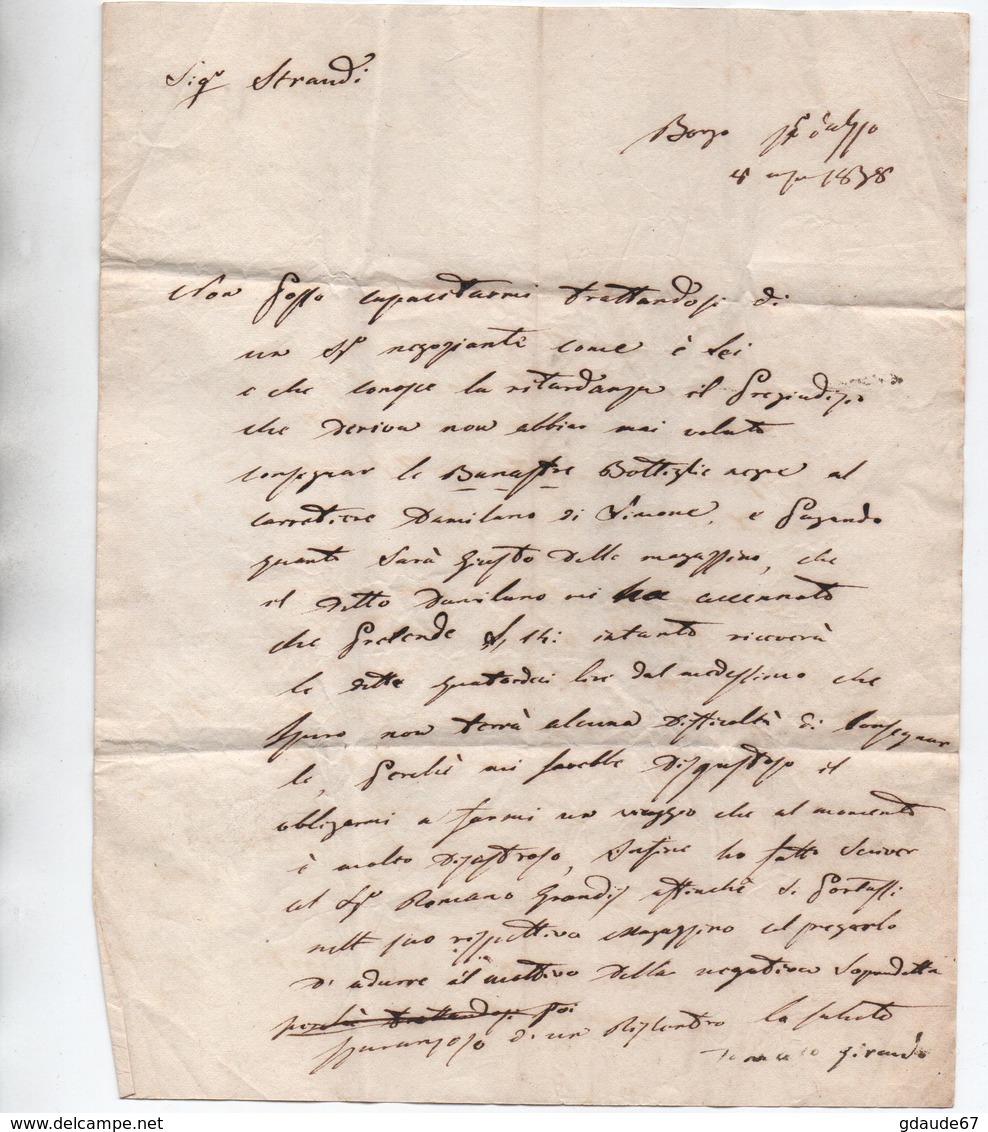 Sigr Strandi
Borgo
1838
Non posso capacitarmi trattandosi di
un Sigr negoziante come è Lei
e che conosce la ritardanza il pregiudizio
che deriva non abbia mai voluto
consegnar le Banastre Bottiglie negre al
carrettiere Damilano di Limone, e pagando
quanto sarà giusto delle magazzino, che
il detto Damilano mi ha accennato
che pretende 14: intanto riceverà
le dette quatordici lire dal medesimo che
spero non terrà alcuna difficoltà di consegnar
le, perchè mi sarebbe disgustoso il
obligarmi a farmi un viaggio che al momento
è molto disastroso, Infine ho fatto scriver
al Sigr Romano Grandis affinchè si portassi
nell suo rispettivo magazzino al pregarlo
d'adurre il mottivo della negativa sopradetta
perchè trattandosi poi
speranzoso di un riscontro la saluto
Giraudo
gdaude67